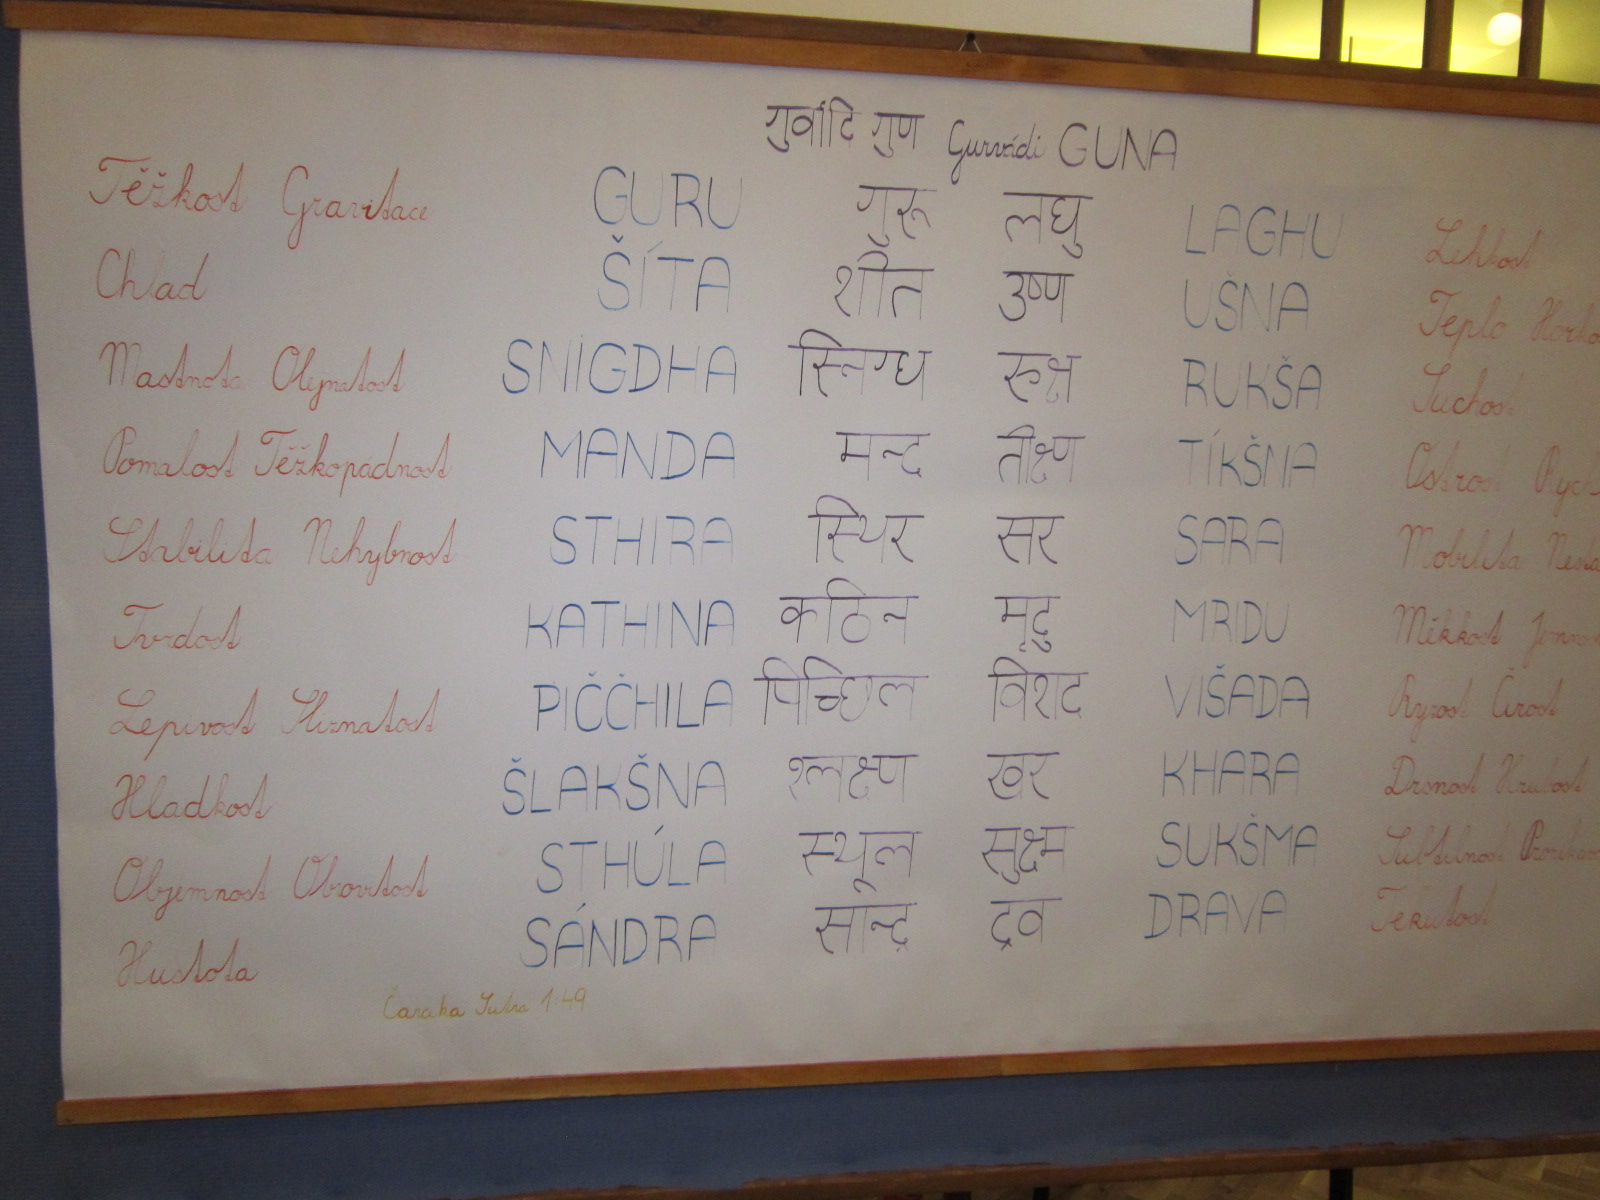 गुर्वादि गुण Gurvádi GUNA
Těžkost Gravitace GURU गुरू लघु LAGHU Lehkost
Chlad ŠÍTA शीत उष्ण UŠNA Teplo Horko
Mastnota Olejnatost SNIGDHA स्निग्ध रुक्ष RUKŠA Suchost
Pomalost Těžkopádnost MANDA मन्द तीक्ष्ण TÍKŠNA Ostrost Rych
Stabilita Nehybnost STHIRA स्थिर सर SARA Mobilita
Tvrdost KATHINA कठिन मृदु MRIDU Měkkost Jemnos
Lepivost Sliznatost PIČČHILA पिच्छिल विशद VIŠADA Ryzost Čirost
Hladkost ŠLAKŠNA श्लक्ष्ण खर KHARA Drsnost Hrubost
Objemnost Obrovitost STHÚLA स्थूल सुक्ष्म SUKŠMA Subtilnost
Hustota SÁNDRA सान्द्र द्रव DRAVA Tekutost
Čaraka Sutra 1.49